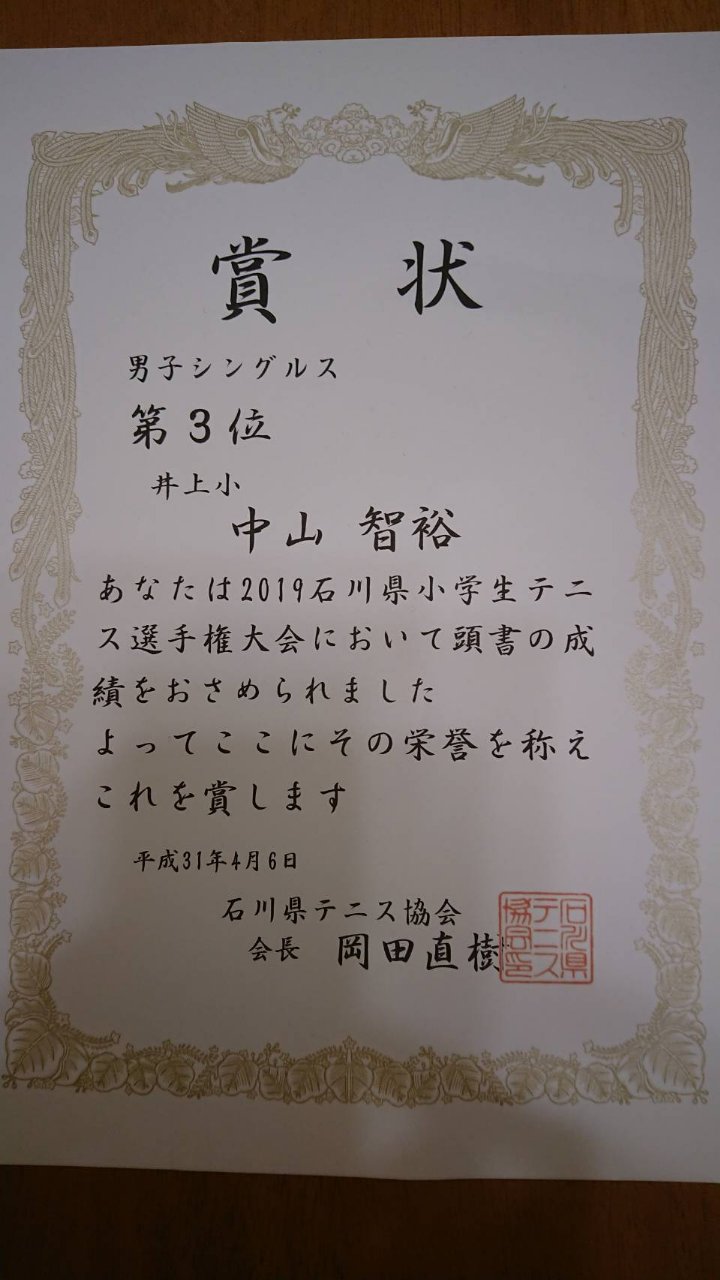 賞状
男子シングルス
第3位
井上小
中山 智裕
あなたは2019石川県小学生テニ
ス選手権大会において頭書の成
績をおさめられました
よってここにその栄誉を称え
これを賞します
平成31年4月6日
石川県テニス協会
会長 岡田直樹
石川県
テニス
協会印